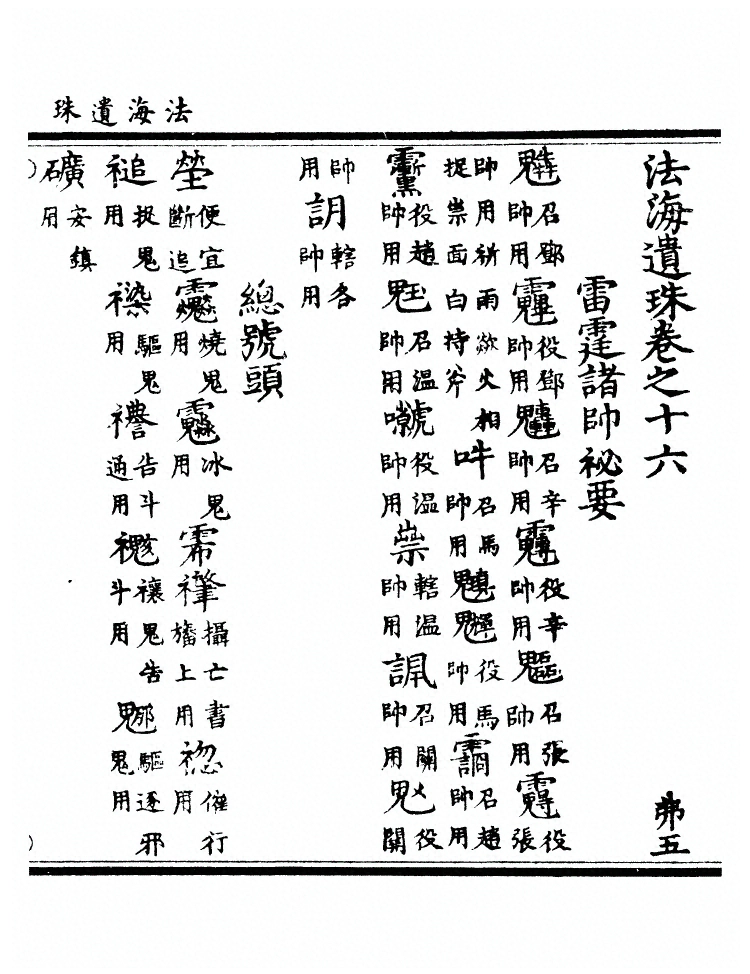 法海遺珠
法海遺珠卷之十六 弗五
雷霆諸帥祕要
召鄧帥用 役鄧帥用 召辛帥用 役辛帥用 召張帥用 役張
帥用祈雨歘火相捉祟面白持斧 吽召馬帥用 役馬帥用 召趙帥用
役趙帥用 召溫帥用 役溫帥用 轄溫帥用 召關帥用 役關
帥用 轄各帥用
總號頭
便宜斷追 燒鬼用 冰鬼用 攝亡書旛上用 催行用
捉鬼用 驅鬼用 告斗通用 禳鬼告斗用 驅逐邪鬼用
礦安鎮用